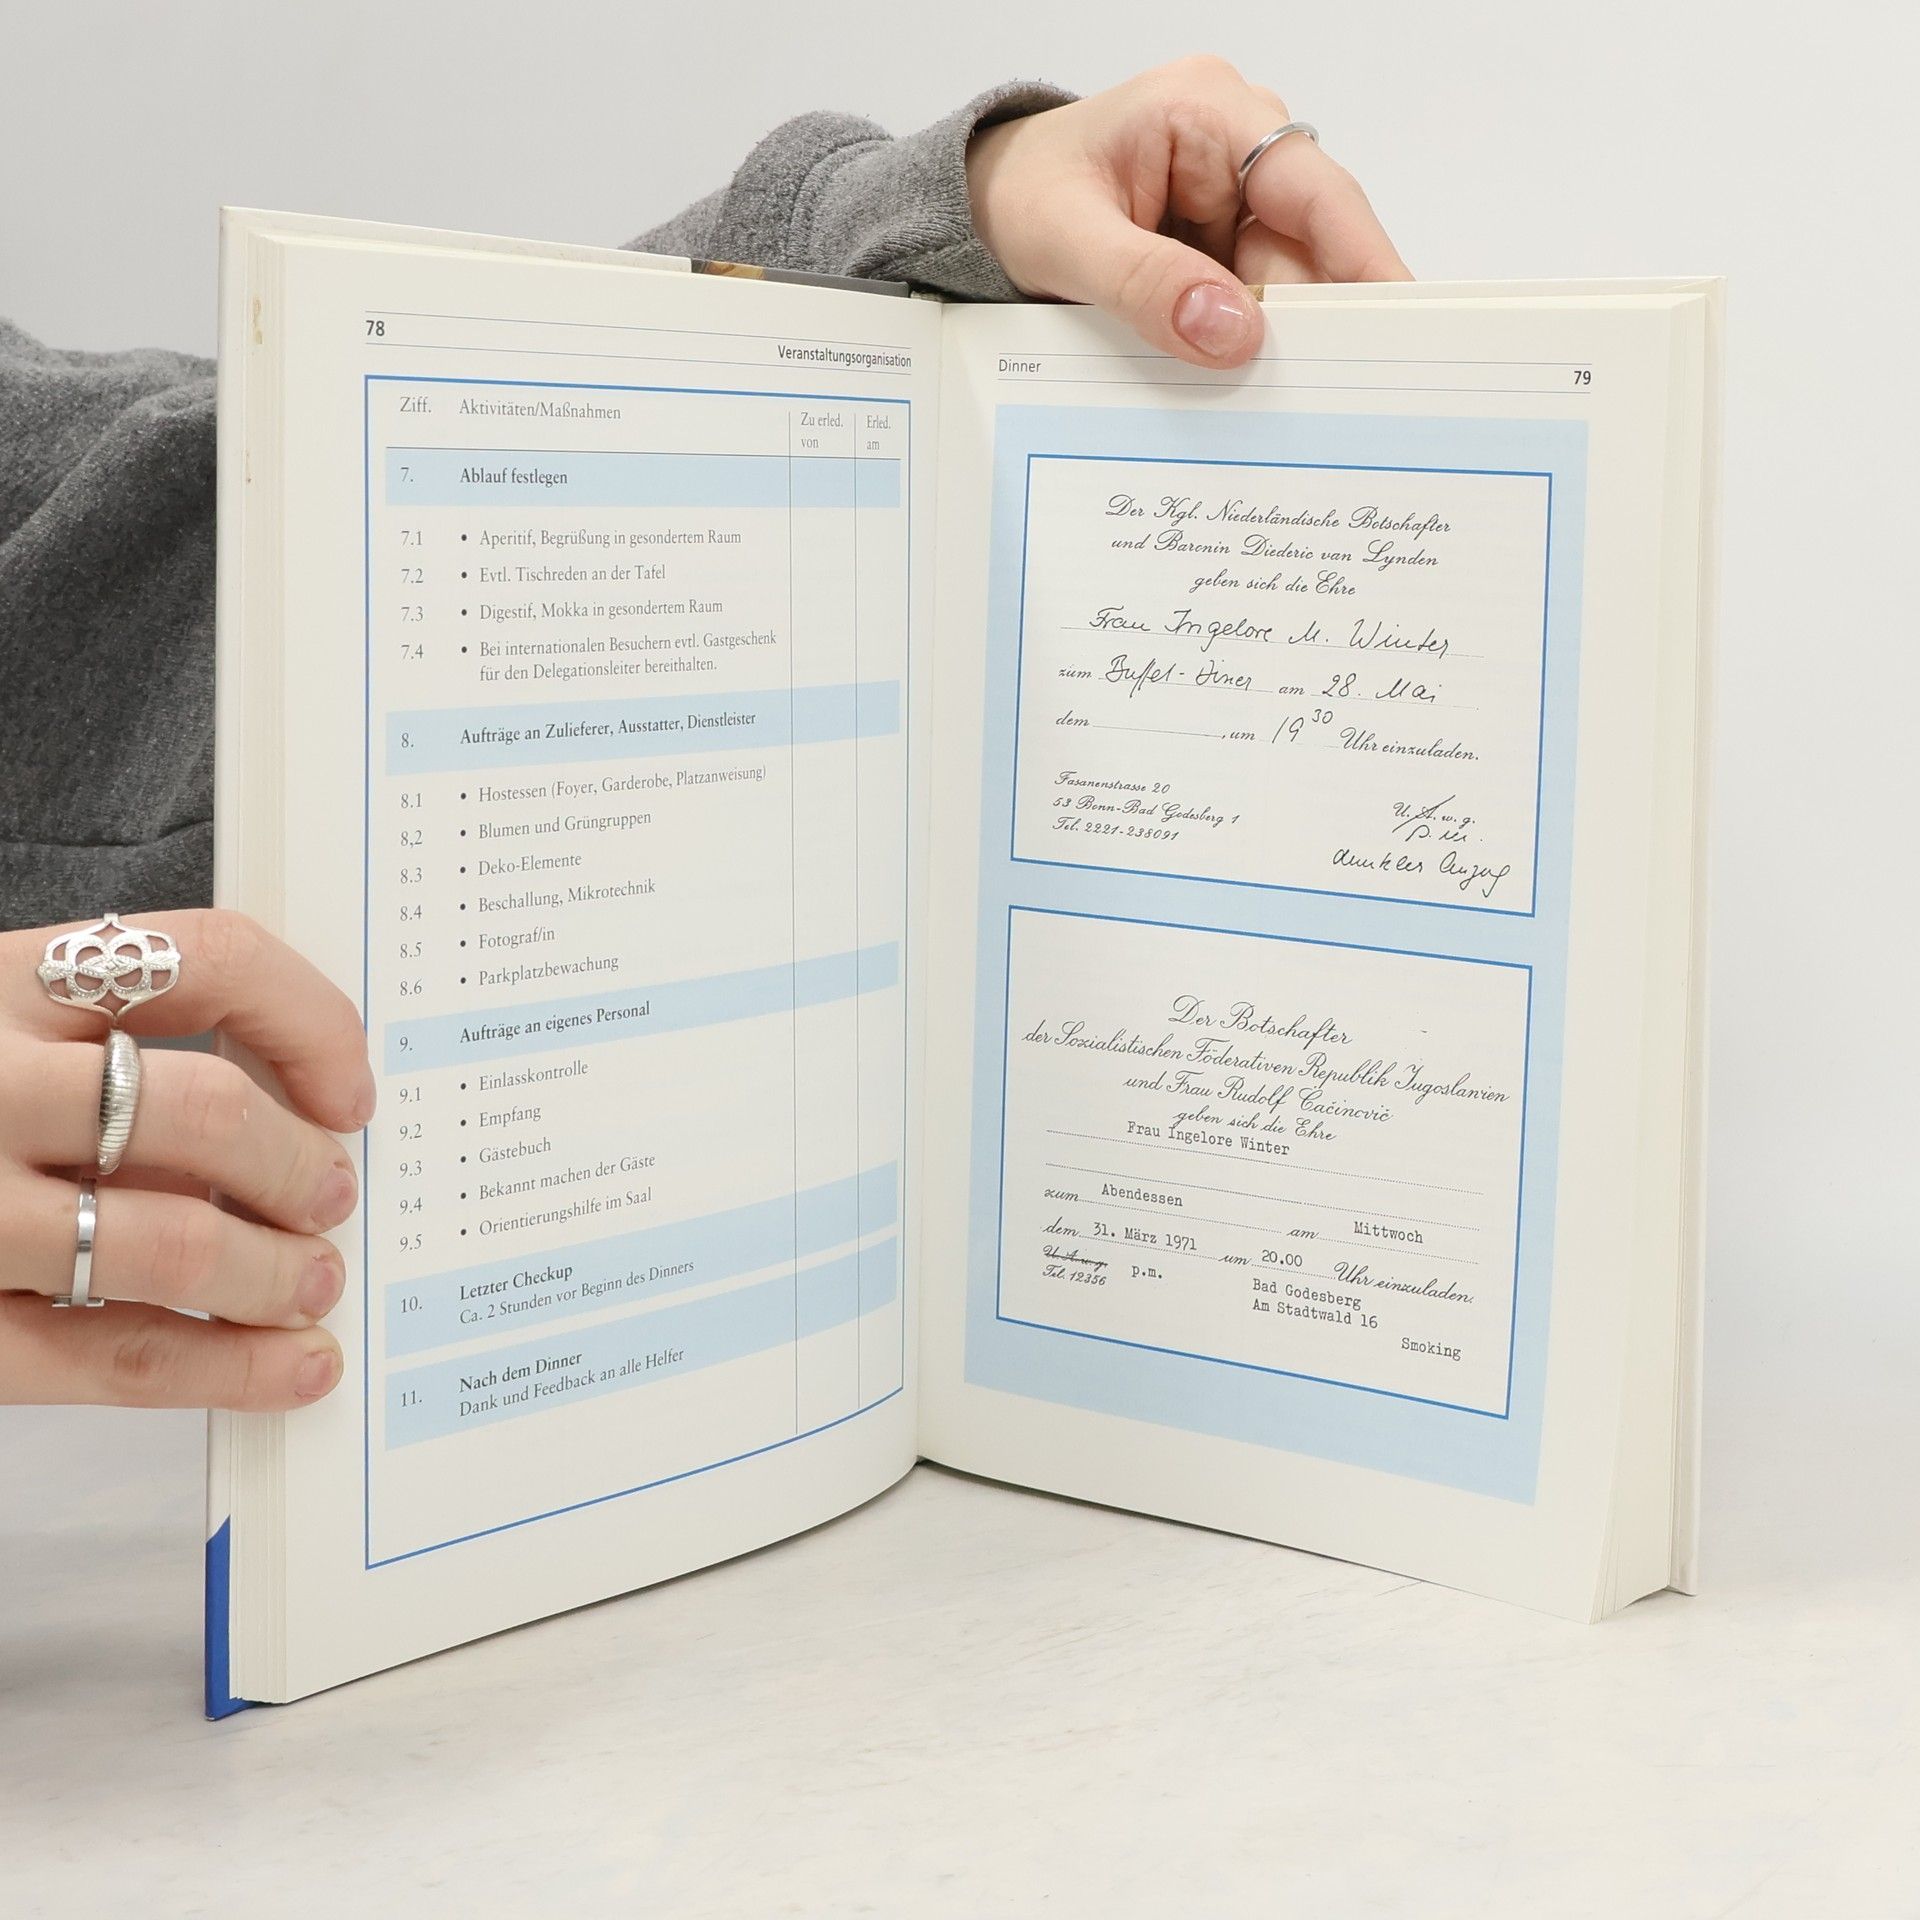 78
Veranstaltungsorganisation
Ziff. Aktivitäten/Maßnahmen Zu erled. von Erled. am
7. Ablauf festlegen
7.1 • Aperitif, Begrüßung in gesondertem Raum
7.2 • Evtl. Tischreden an der Tafel
7.3 • Digestif, Mokka in gesondertem Raum
7.4 • Bei internationalen Besuchern evtl. Gastgeschenk
für den Delegationsleiter bereithalten.
8. Aufträge an Zulieferer, Ausstatter, Dienstleister
8.1 • Hostessen (Foyer, Garderobe, Platzanweisung)
8,2 • Blumen und Grüngruppen
8.3 • Deko-Elemente
8.4 • Beschallung, Mikrotechnik
8.5 • Fotograf/in
8.6 • Parkplatzbewachung
9. Aufträge an eigenes Personal
9.1 • Einlasskontrolle
9.2 • Empfang
9.3 • Gästebuch
9.4 • Bekannt machen der Gäste
9.5 • Orientierungshilfe im Saal
10. Letzter Checkup
Ca. 2 Stunden vor Beginn des Dinners
11. Nach dem Dinner
Dank und Feedback an alle Helfer
Dinner 79
Der Kgl. Niederländische Botschafter
und Baronin Diederic van Lynden
geben sich die Ehre
Frau Ingelore M. Winter
zum Buffet-Diner am 28. Mai
dem , um 19 30 Uhr einzuladen.
Fasanenstrasse 20
53 Bonn-Bad Godesberg 1
Tel. 2221-238091
U. A. w. g.
p. m.
dunkler Anzug
Der Botschafter
der Sozialistischen Föderativen Republik Jugoslawien
und Frau Rudolf Čačinovič
geben sich die Ehre
Frau Ingelore Winter
zum Abendessen am Mittwoch
dem 31. März 1971 um 20.00 Uhr einzuladen.
U. A. w. g. p.m.
Tel. 12356
Bad Godesberg
Am Stadtwald 16
Smoking